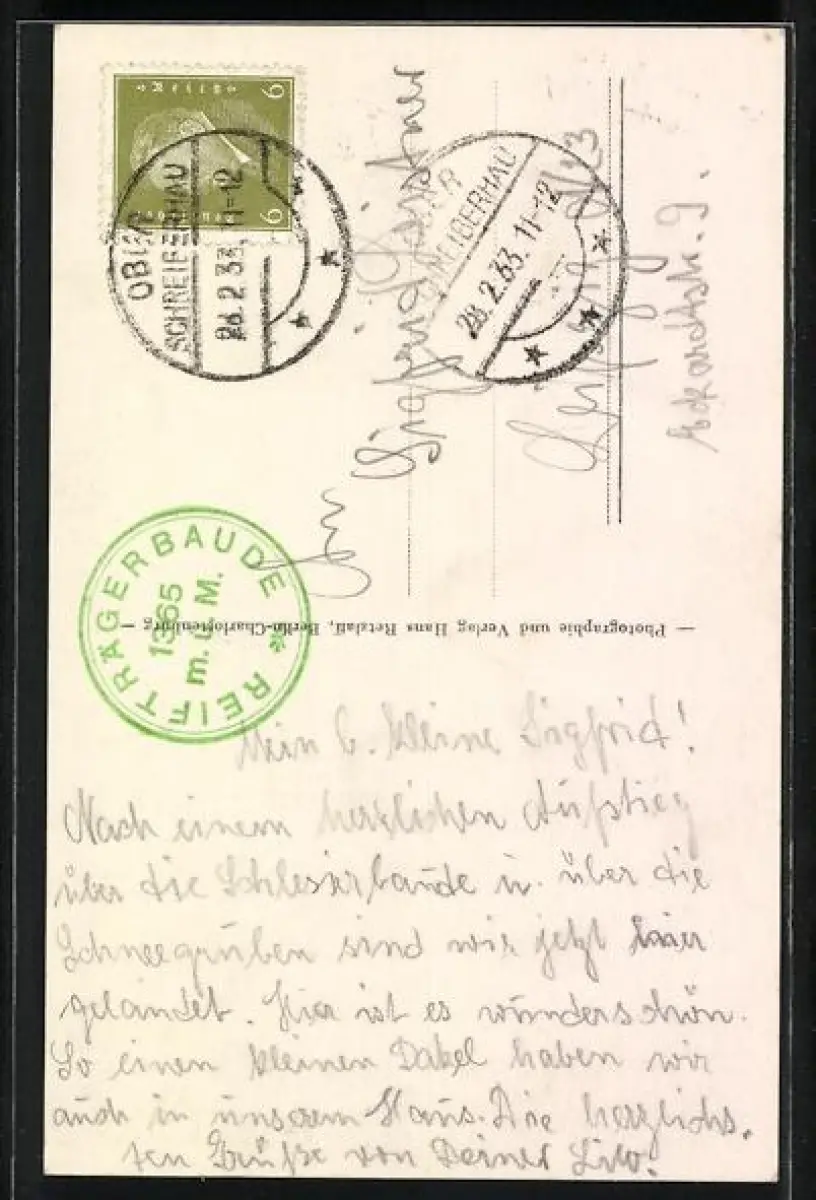 6 6
OBER
SCHREIBERHAU
28.2.33.11-12
OBER
SCHREIBERHAU
28.2.33.11-12
An
Sigfrid
Leipzig
Eckardtstr. 9.
REIFTRÄGERBAUDE
1365
m. ü. M.
— Photographie und Verlag Hans Retzlaff, Berlin-Charlottenburg —
Mein l. kleine Sigfrid!
Nach einem herzlichen Aufstieg
über die Schlesierbaude u. über die
Schneegruben sind wir jetzt hier
gelandet. Hier ist es wunderschön.
So einen kleinen Dakel haben wir
auch in unserem Haus. Die herzlichs.
ten Grüße von Deiner